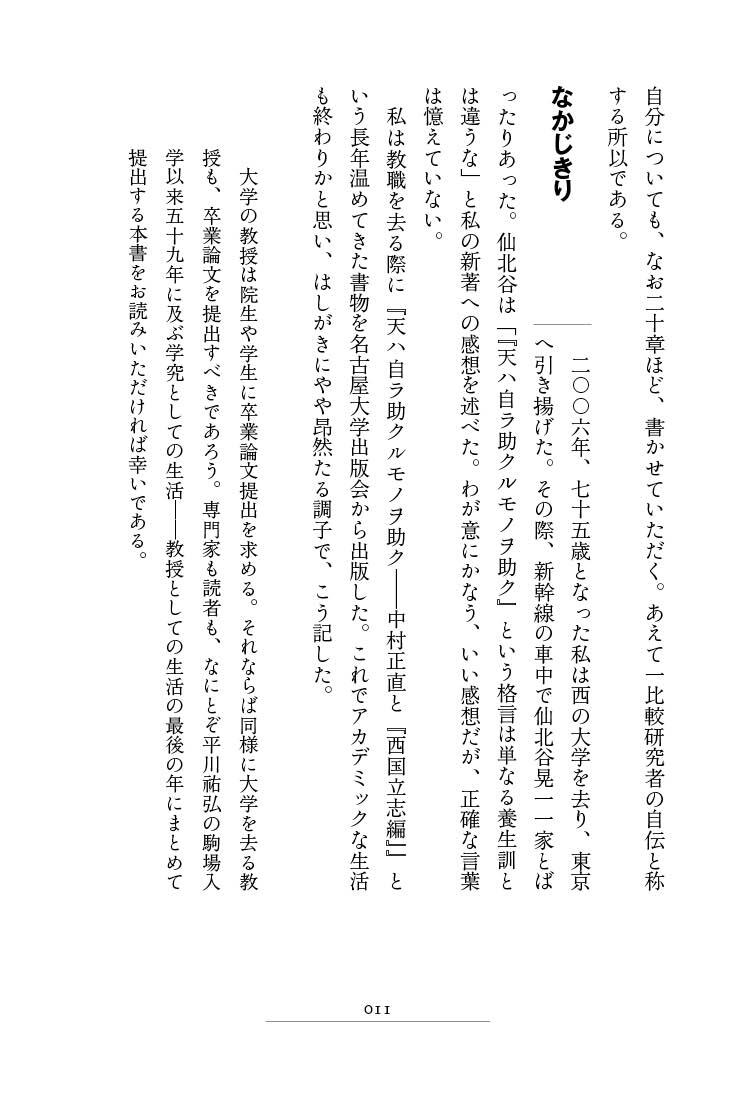 自分についても、なお二十章ほど、書かせていただく。あえて一比較研究者の自伝と称
する所以である。
なかじきり
二〇〇六年、七十五歳となった私は西の大学を去り、東京
へ引き揚げた。その際、新幹線の車中で仙北谷晃一一家とば
ったりあった。仙北谷は「『天ハ自ラ助クルモノヲ助ク』という格言は単なる養生訓と
は違うな」と私の新著への感想を述べた。わが意にかなう、いい感想だが、正確な言葉
は憶えていない。
私は教職を去る際に『天ハ自ラ助クルモノヲ助ク――中村正直と『西国立志編』』と
いう長年温めてきた書物を名古屋大学出版会から出版した。これでアカデミックな生活
も終わりかと思い、はしがきにやや昂然たる調子で、こう記した。
大学の教授は院生や学生に卒業論文提出を求める。それならば同様に大学を去る教
授も、卒業論文を提出すべきであろう。専門家も読者も、なにとぞ平川祐弘の駒場入
学以来五十九年に及ぶ学究としての生活――教授としての生活の最後の年にまとめて
提出する本書をお読みいただければ幸いである。
011